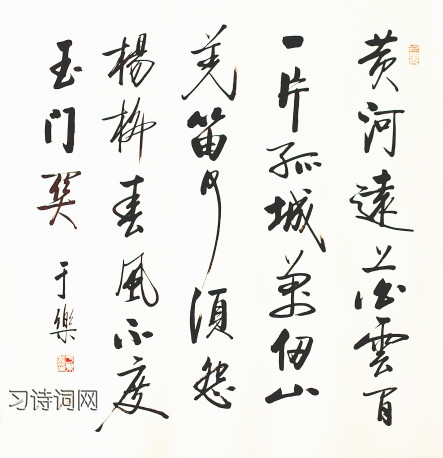 黄河遠上白雲間
一片孤城萬仞山
羌笛何須怨
楊柳春風不度
玉门關
于樂
习诗词网